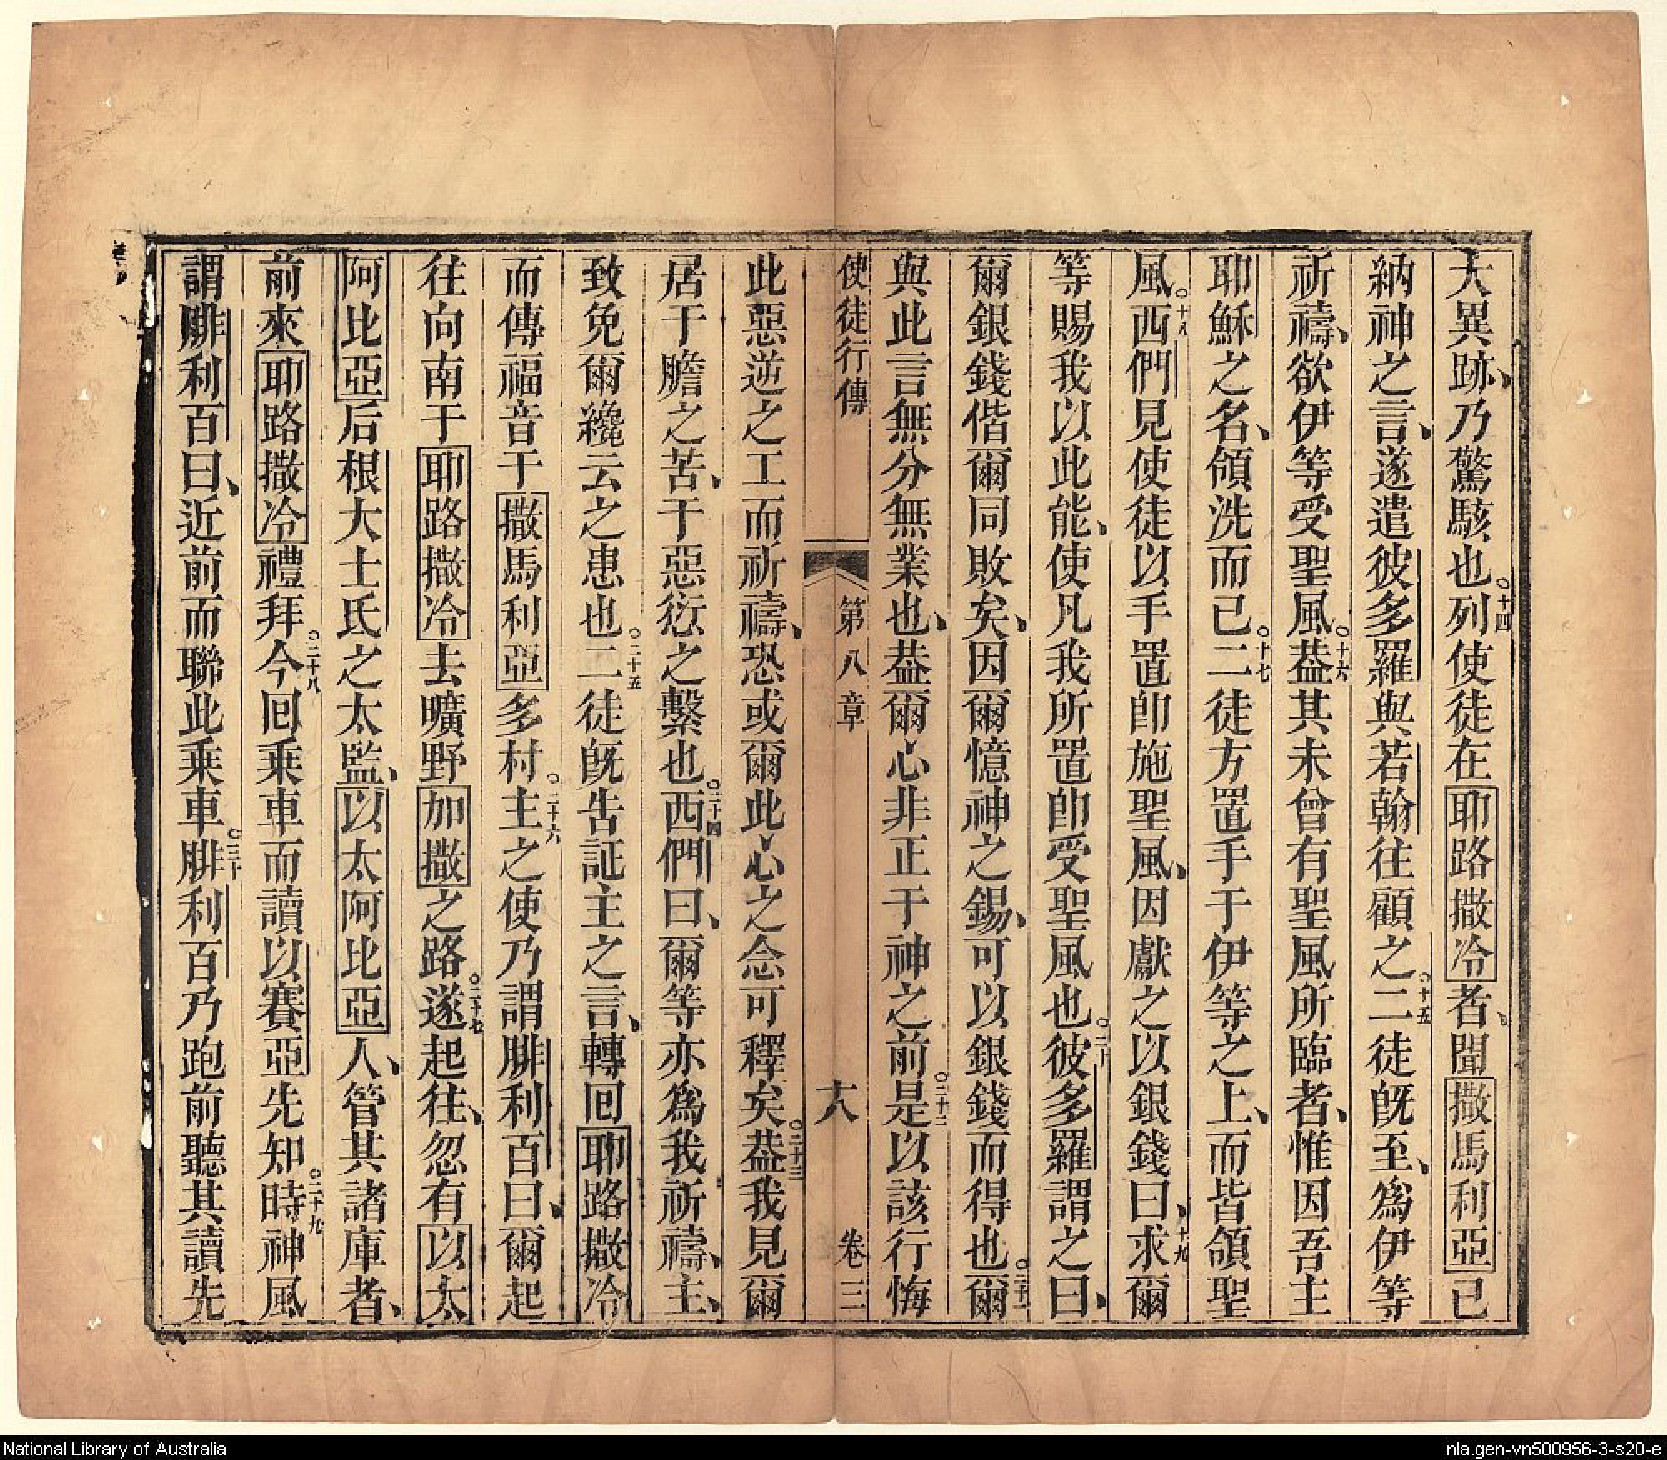 大異跡、乃驚駭也。十四列使徒在耶路撒冷者、聞撒馬利亞已
納神之言、遂遣彼多羅與若翰往顧之。十五二徒旣至、爲伊等
祈禱、欲伊等受聖風。十六葢其未曾有聖風所臨者、惟因吾主
耶穌之名、領洗而已。十七二徒方置手于伊等之上、而皆領聖
風。十八西們見使徒以手置卽施聖風、因獻之以銀錢曰、十九求爾
等賜我以此能、使凡我所置卽受聖風也。二十彼多羅謂之曰、
爾銀錢偕爾同敗矣、因爾憶神之錫、可以銀錢而得也。二十一爾
與此言無分無業也、葢爾心非正于神之前。二十二是以該行悔
使徒行傳 第八章 十八 卷三
此惡逆之工而祈禱、恐或爾此心之念可釋矣。二十三葢我見爾
居于膽之苦、于惡愆之繫也。二十四西們曰、爾等亦爲我祈禱、主、
致免爾纔云之患也。二十五二徒旣吿証主之言、轉回耶路撒冷
而傳福音于撒馬利亞多村。二十六主之使乃謂腓利百曰、爾起
往向南于耶路撒冷去曠野加撒之路。二十七遂起往、忽有以太
阿比亞后根大士氏之太監、以太阿比亞人、管其諸庫者、
前來耶路撒冷禮拜。二十八今回乘車而讀以賽亞先知。二十九時神風
謂腓利百曰、近前而聯此乘車。三十腓利百乃跑前聽其讀先
National Library of Australia
nla.gen-vn500956-3-s20-e